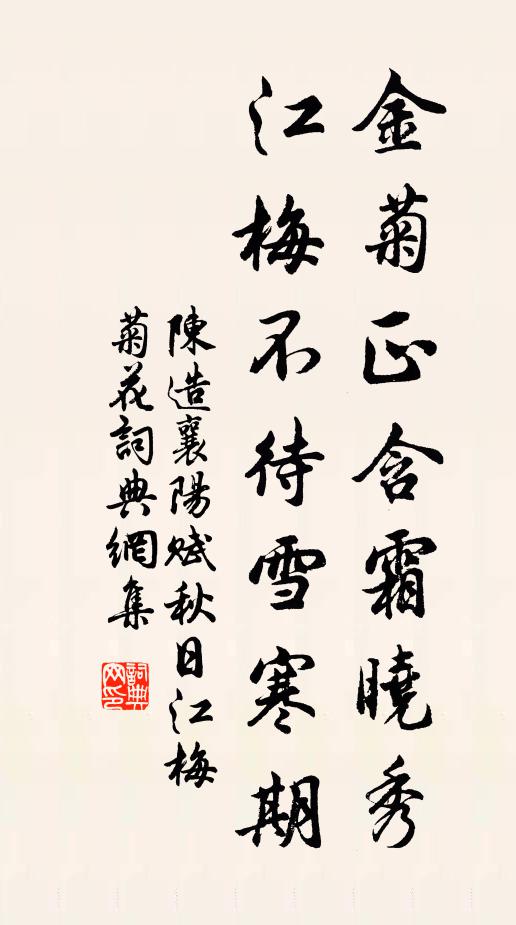 金菊正含霜曉秀
江梅不待雪寒期
陳造襄陽賦秋日江梅
菊花詞典網集
詞典網印